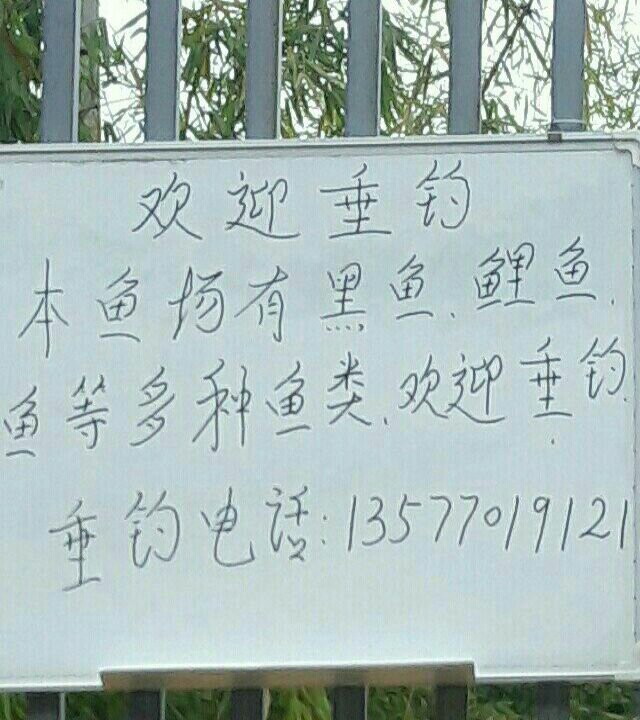 欢迎垂钓
本鱼场有黑鱼、鲤鱼、
鱼等多种鱼类、欢迎垂钓
垂钓电话:13577019121